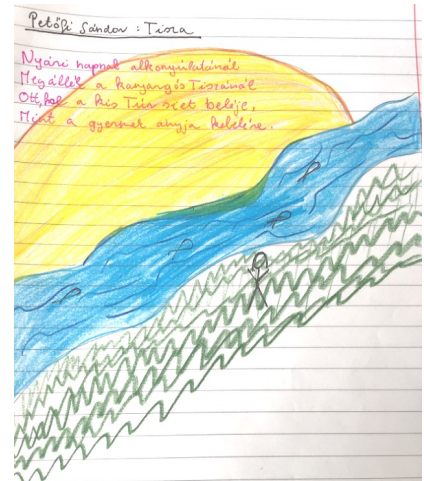 Petőfi Sándor: Tisza
Nyári napnak alkonyúlatánál
Megállék a kanyargós Tiszánál
Ott, hol a kis Túr siet beléje,
Mint a gyermek anyja kebelére.